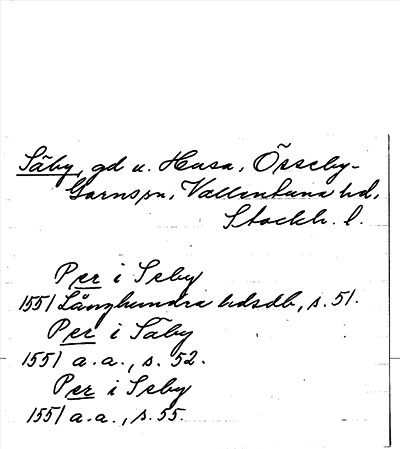 Säby, gd u. Husa, Össeby-
Garnsn, Vallentuna hd,
Stockh. l.
Per i Seby
1551 Långhundra hdsdb, s. 51.
Per i Säby
1551 a.a., s. 52.
Per i Seby
1551 a.a., s. 55.